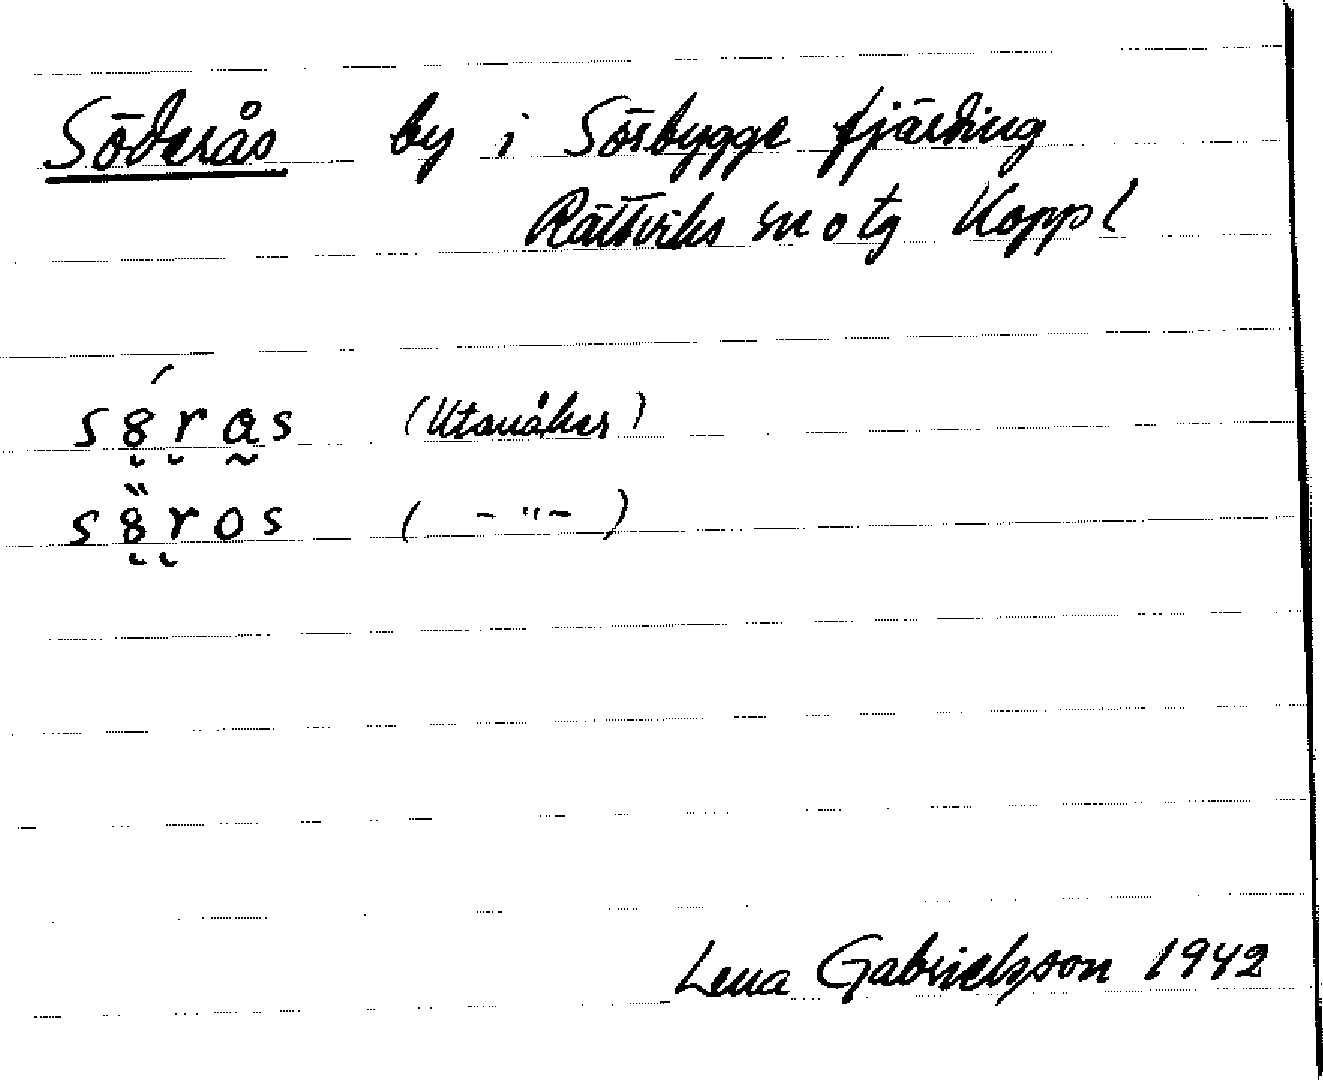 Söderås by i Sörbygge fjärding
Rättviks sn o tg Koppl
s8ras (Utanåker)
s8ros ( - " - )
Lena Gabrielsson 1942